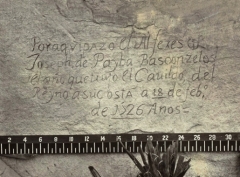 Por aqui pazo el Alferes Dn
Joseph de Payba Basconzelos
el año que trujo el Cauildo del
Reyno a su costa a 18 de feb°
de 1726 Años
2 4 6 8 10 12 14 16 18 20 22 24 26 28 30